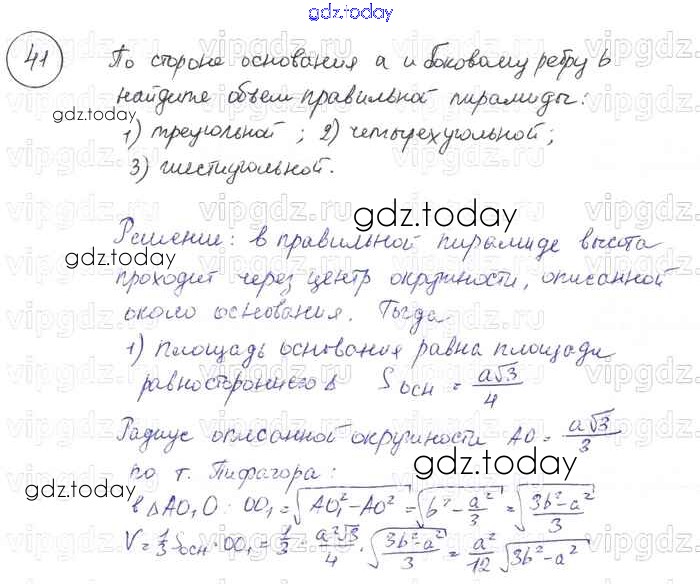 gdz.today
41 По стороне основания a и боковому ребру b
найдите объем правильной пирамиды:
gdz.today
1) треугольной; 2) четырехугольной;
3) шестиугольной.
gdz.today
Решение: в правильной пирамиде высота
gdz.today
проходит через центр окружности, описанной
около основания. Тогда
1) площадь основания равна площади
равностороннего Δ Sосн = a√3/4
Радиус описанной окружности AO = a√3/3
gdz.today
по т. Пифагора:
gdz.today
в ΔAO₁O: OO₁ = √(AO₁² - AO²) = √(b² - a²/3) = √((3b² - a²)/3)
V = 1/3 Sосн · OO₁ = 1/3 · a²√3/4 · √((3b² - a²)/3) = a²/12 √(3b² - a²)